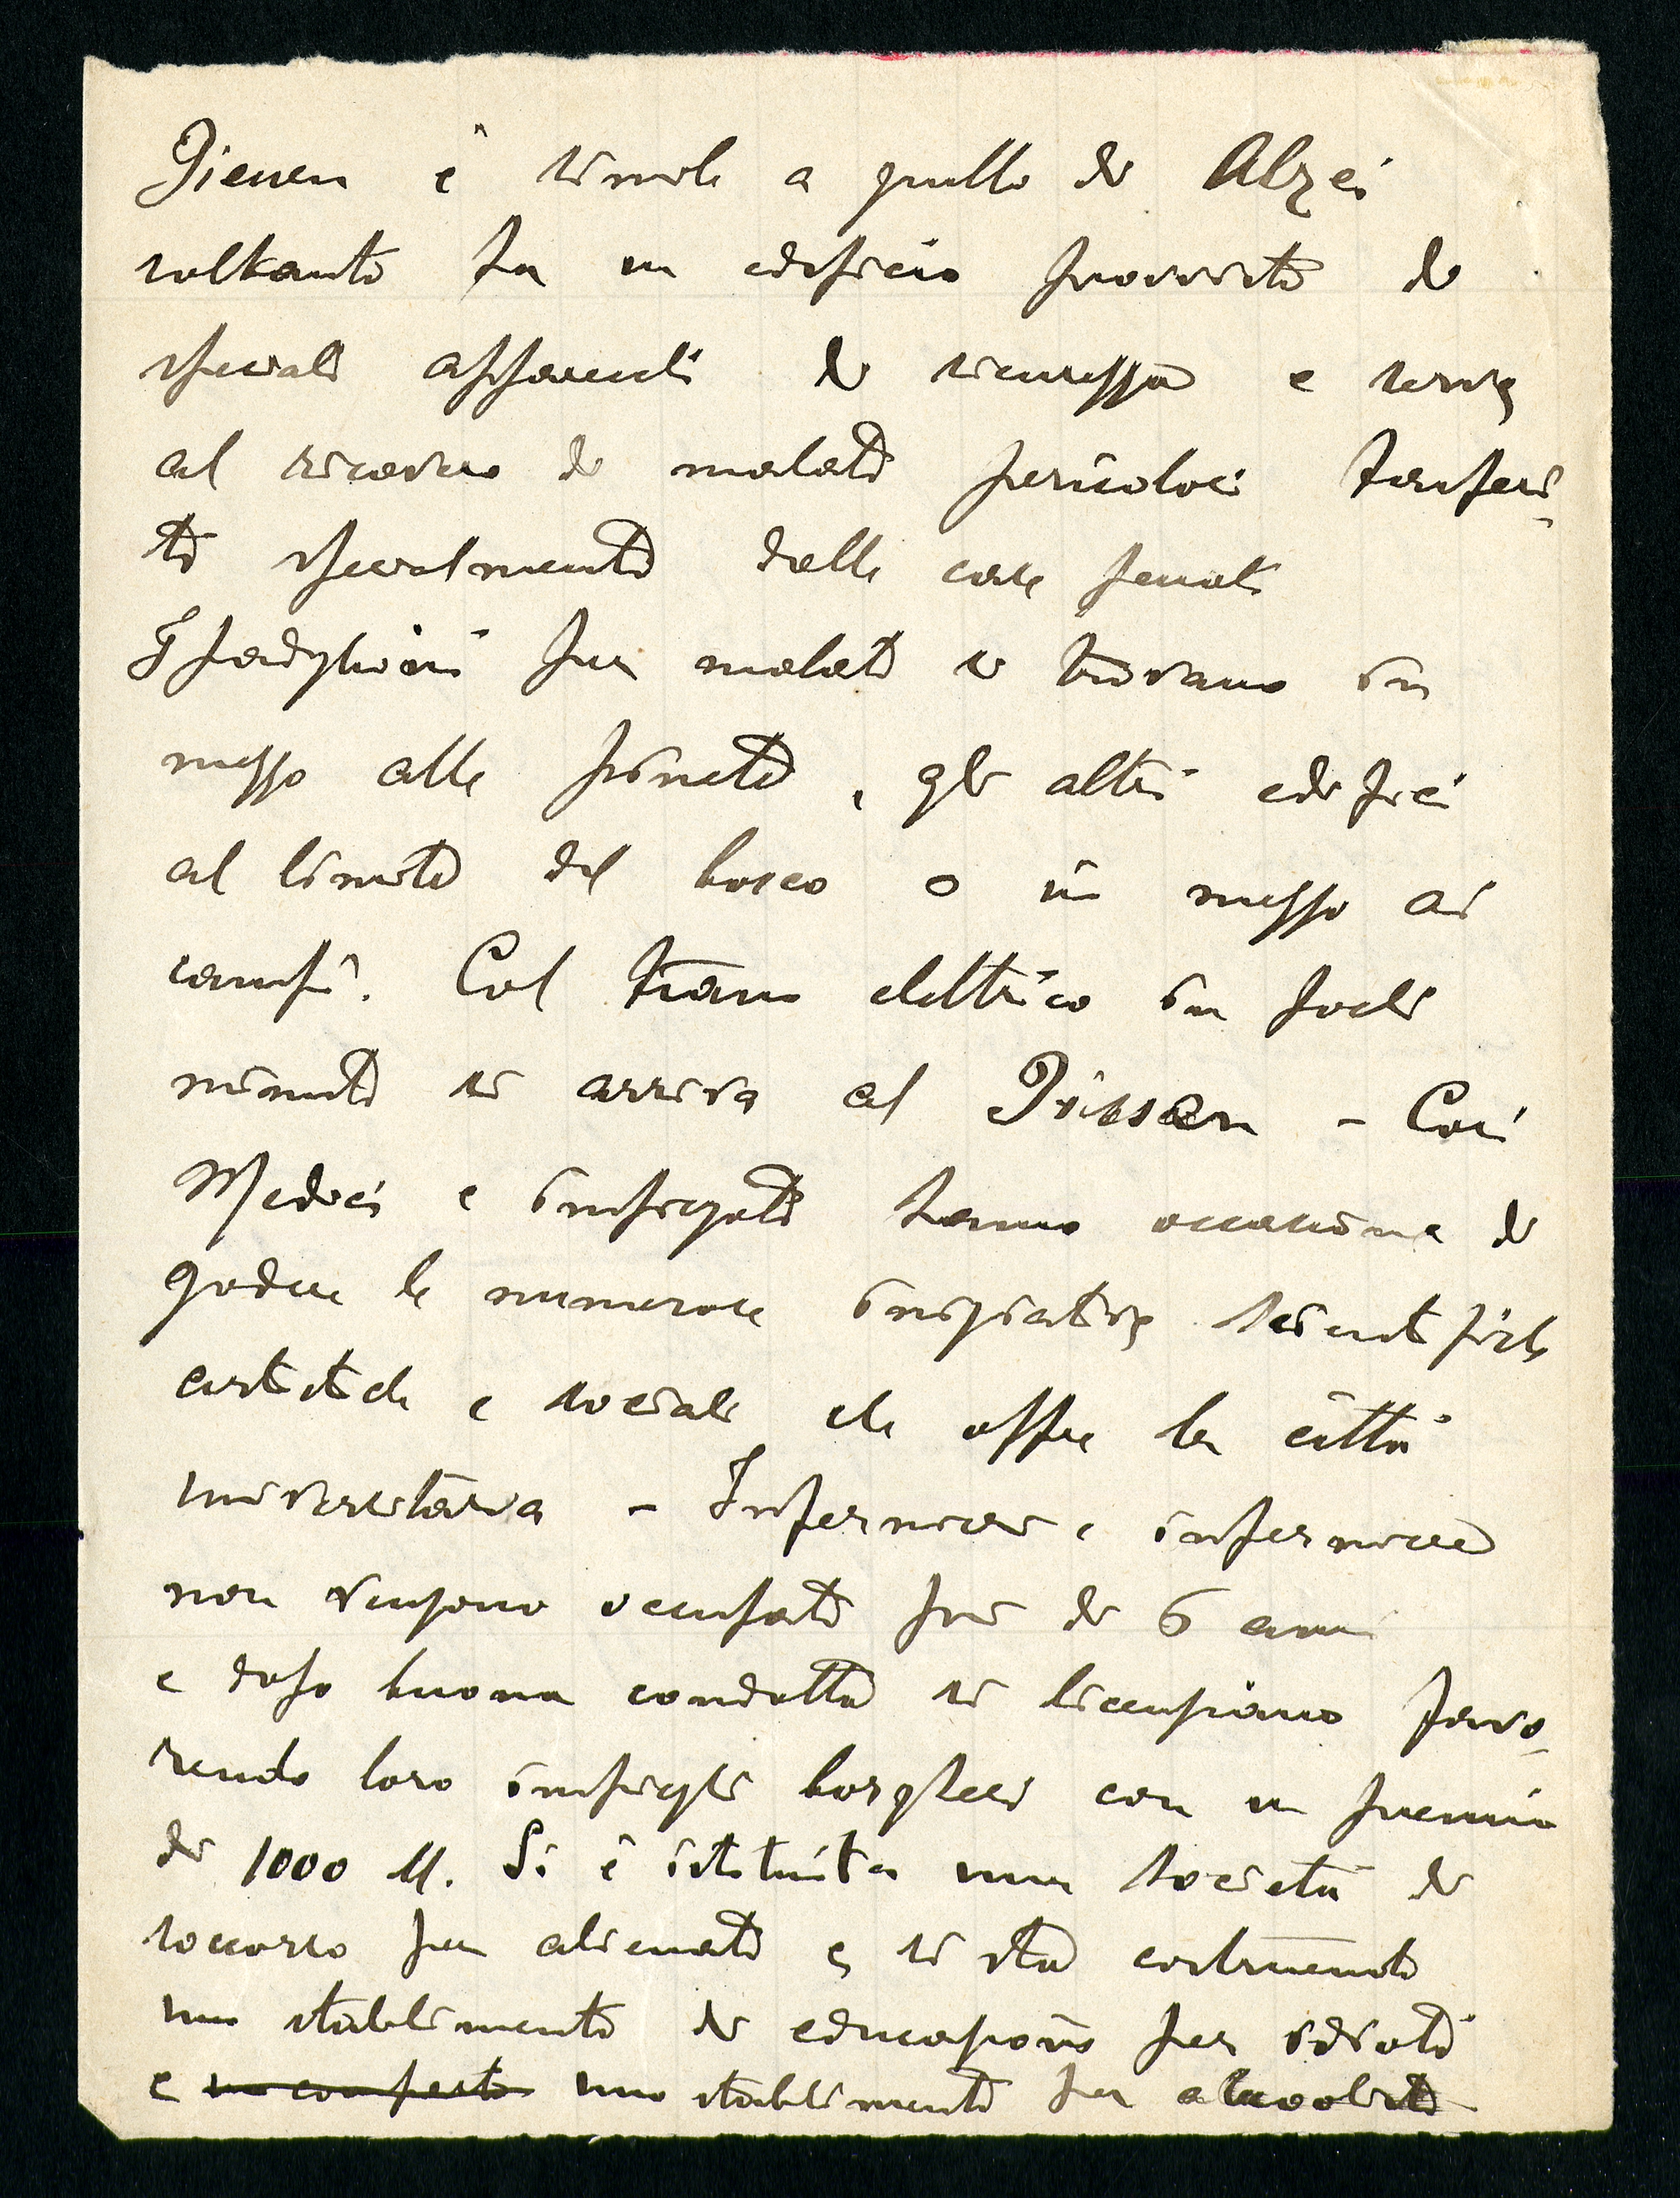 Giessen è simile a quello di Alzei
soltanto ha un edificio provvisto di
speciali apparecchi di sicurezza e serve
al ricovero di malati pericolosi trasferi-
ti specialmente dalle case penali
I padiglioni per malati si trovano in
mezzo alle pinete, gli altri edifici
al limite del bosco o in mezzo ai
campi. Col tram elettrico in pochi
minuti si arriva a Giessen - Così
Medici e impiegati hanno occasione di
godere le numerose iniziative scientifiche
artistiche e sociali che offre la città
universitaria - Infermieri e infermiere
non vengono occupati più di 6 anni
e dopo buona condotta si licenziano favo-
rendo loro impieghi borghesi con un premio
di 1000 M. Si è istituita una società di
soccorso per alienati e si sta costruendo
uno stabilimento di educazione per idioti
e uno stabilimento per alcoolisti